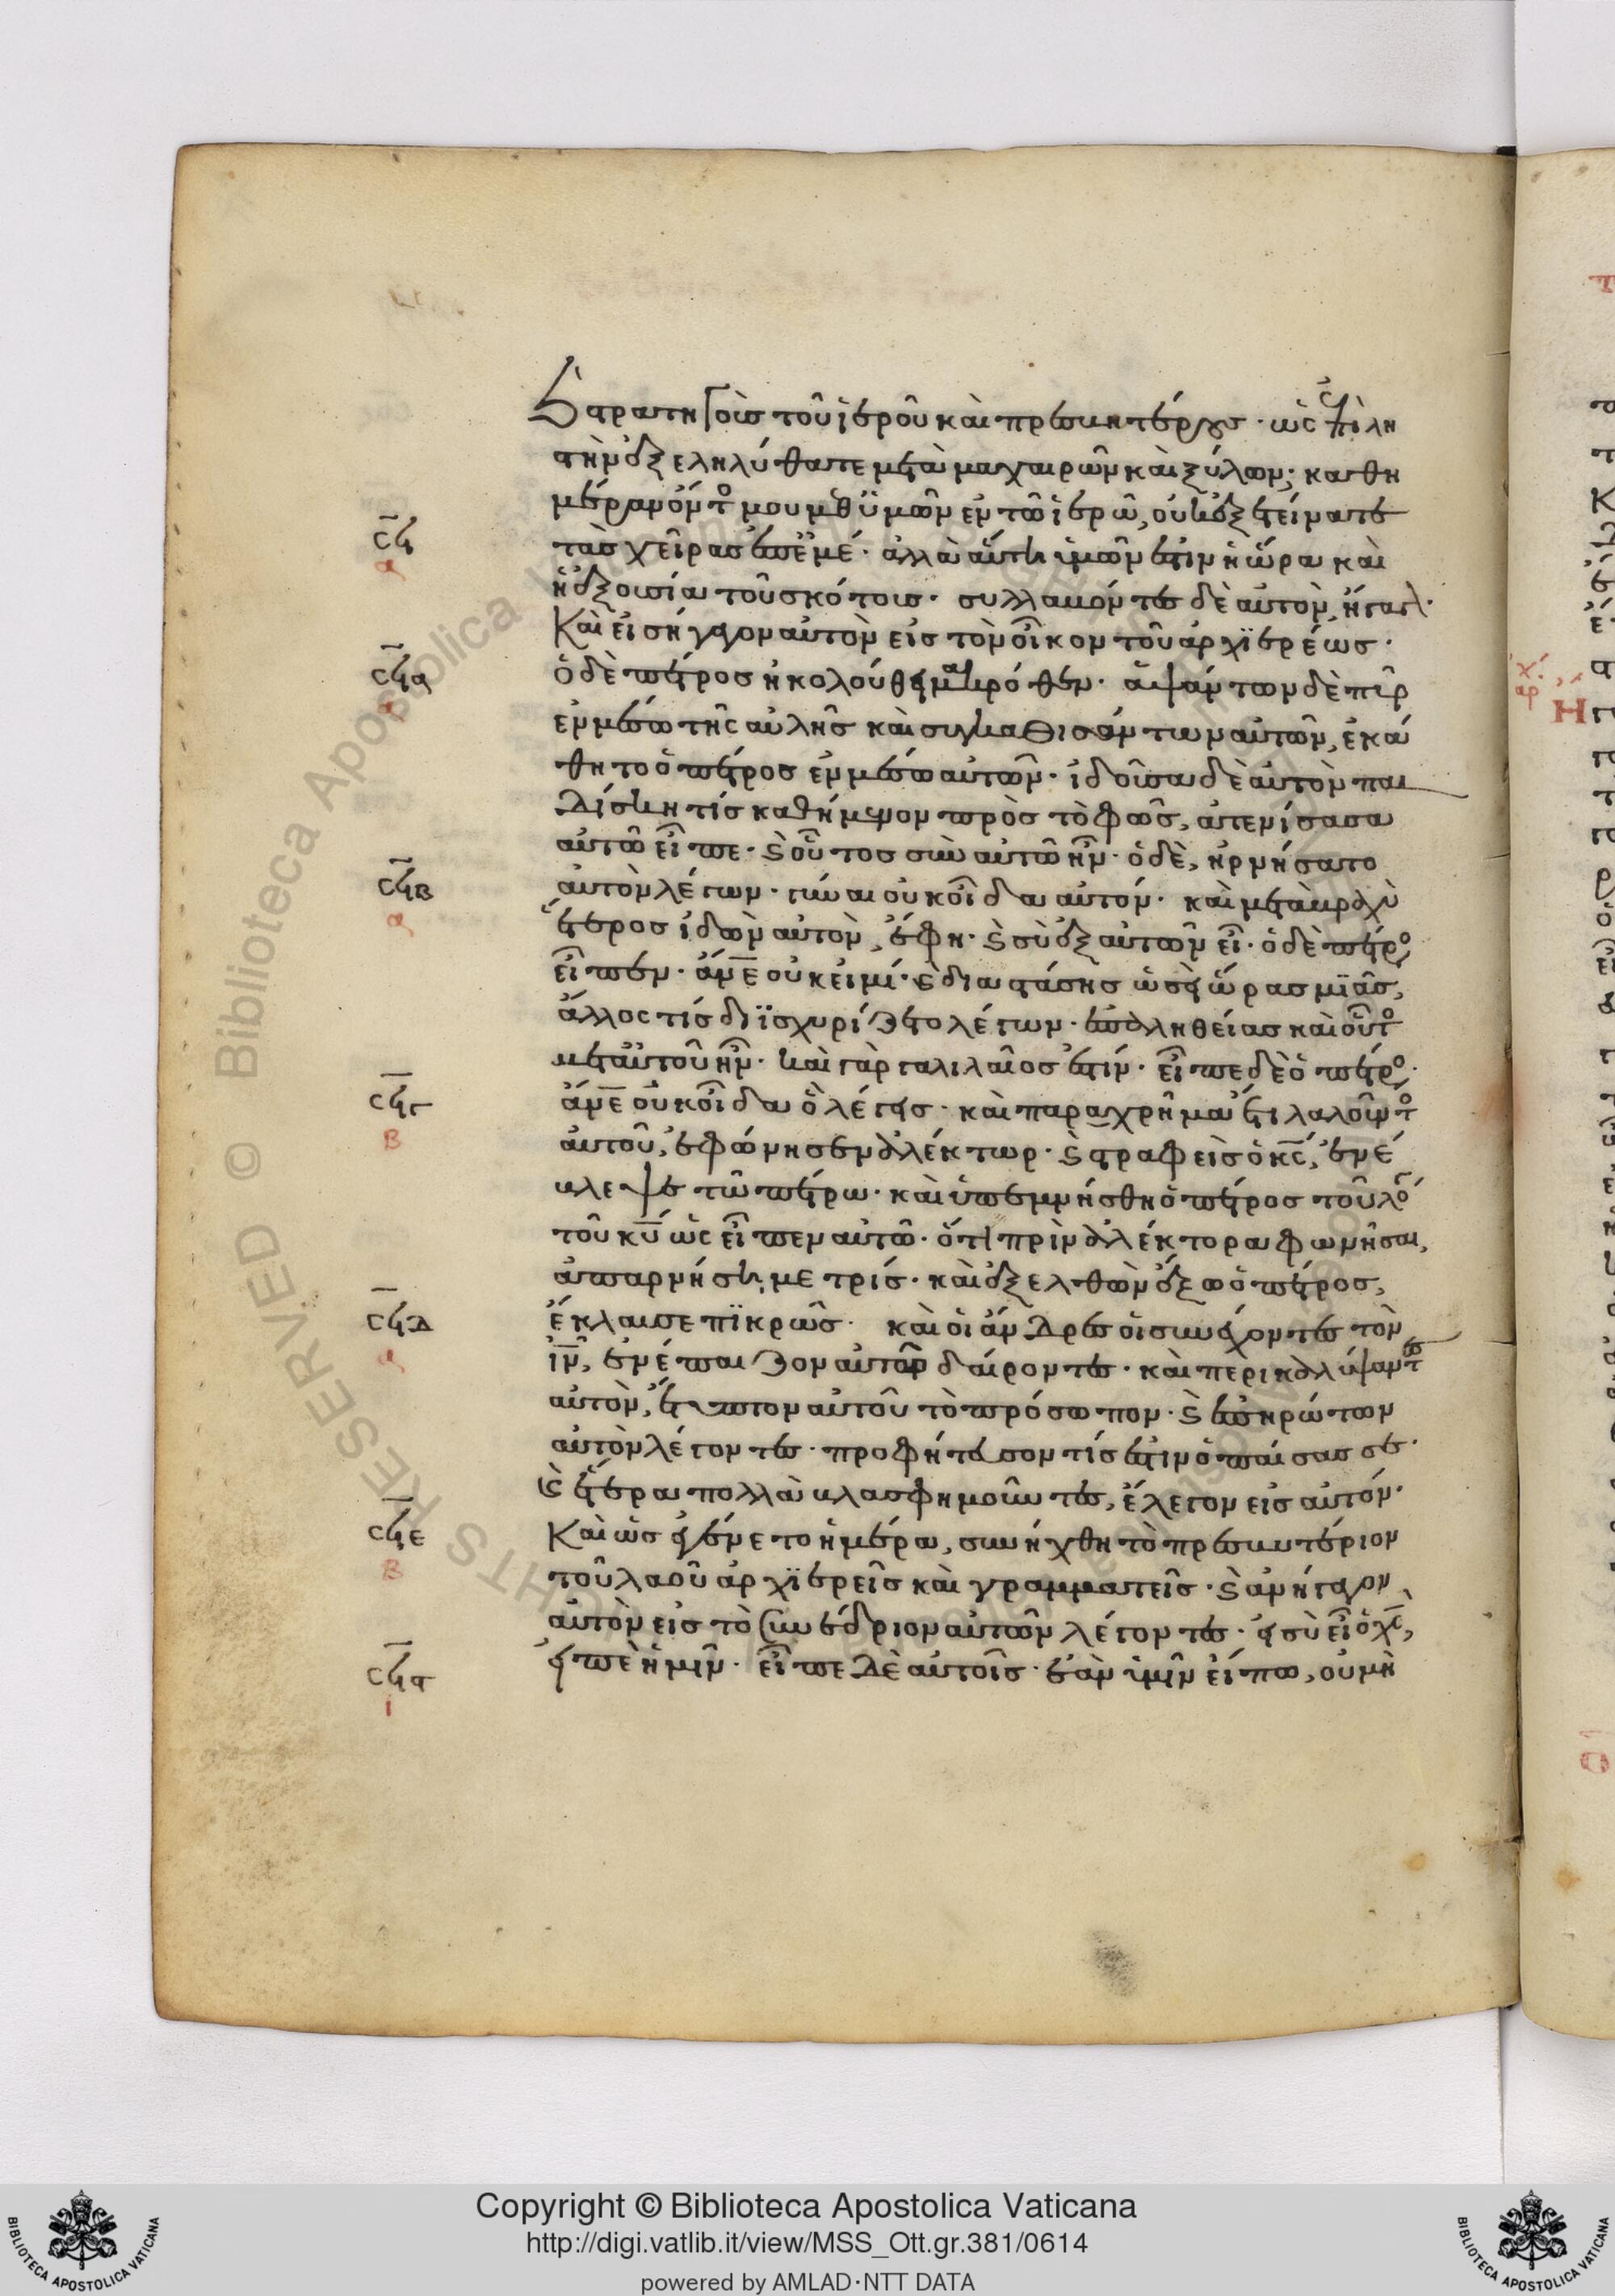 στρατηγοὺς τοῦ ἱεροῦ καὶ πρεσβυτέρους· ὡς ἐπὶ λη
στὴν ἐξεληλύθατε μετὰ μαχαιρῶν καὶ ξύλων; καθη
μέραν ὄντος μου μεθ ϋμῶν ἐν τῶ ἱερῶ, οὐκ ἐξετείνατε
τὰς χεῖρας ἐπ ἐμέ· ἀλλ αὕτη ὑμῶν ἐστιν ἡ ὥρα καὶ
ἡ ἐξουσία τοῦ σκότους· συλλαβόντες δὲ αὐτὸν, ἤγαγον·
Καὶ εἰσήγαγον αὐτὸν εἰς τὸν οἶκον τοῦ ἀρχϊερέως·
ὁ δὲ πέτρος ἠκολούθει μακρόθεν· ἁψάντων δὲ πῦρ
ἐν μέσω τῆς αὐλῆς καὶ συγκαθισάντων αὐτῶν, ἐκά
θητο ὁ πέτρος ἐν μέσω αὐτῶν· ἰδοῦσα δὲ αὐτὸν παι
δίσκη τίς καθήμενον πρὸς τὸ φῶς, ἀτενίσασα
αὐτῶ εἶπε· καὶ οὗτος σὺν αὐτῶ ἦν· ὁ δὲ, ἠρνήσατο
αὐτὸν λέγων· γύναι οὐκ οἶδα αὐτόν· καὶ μετὰ βραχὺ
ἕτερος ἰδὼν αὐτὸν, ἔφη· καὶ σὺ ἐξ αὐτῶν εἶ· ὁ δὲ πέτρος
εἶπεν· ἄνε οὐκ εἰμί· καὶ διαστάσης ὡσεὶ ὥρας μϊᾶς,
ἄλλος τίς διϊσχυρίζετο λέγων· ἐπ ἀληθείας καὶ οὗτος
μετ αὐτοῦ ἦν· καὶ γὰρ γαλιλαῖος ἐστίν· εἶπε δὲ ὁ πέτρος·
ἄνε οὐκ οἶδα ὃ λέγεις· καὶ παραχρῆμα ἔτι λαλοῦντος
αὐτοῦ, ἐφώνησεν ἀλέκτωρ· καὶ στραφεὶς ὁ κς, ἐνέ
βλεψε τῶ πέτρω· καὶ ὑπεμνήσθη ὁ πέτρος τοῦ λόγου
τοῦ κυ ὡς εἶπεν αὐτῶ· ὅτι πρὶν ἀλέκτορα φωνῆσαι,
ἀπαρνήση με τρίς· καὶ ἐξελθὼν ἔξω ὁ πέτρος,
ἔκλαυσε πϊκρῶς· καὶ οἱ ἄνδρες οἱ συνέχοντες τὸν
ιν, ἐνέπαιζον αὐτῶ δαίροντες· καὶ περικαλύψαντες
αὐτὸν, ἔτυπτον αὐτοῦ τὸ πρόσωπον· καὶ ἐπηρώτων
αὐτὸν λέγοντες· προφήτευσον τίς ἐστιν ὁ παίσας σε·
καὶ ἕτερα πολλὰ βλασφημοῦντες, ἔλεγον εἰς αὐτόν·
Καὶ ὡς ἐγένετο ἡμέρα, συνήχθη τὸ πρεσβυτέριον
τοῦ λαοῦ ἀρχϊερεῖς καὶ γραμματεῖς· καὶ ἀνήγαγον
αὐτὸν εἰς τὸ συνέδριον αὐτῶν λέγοντες· εἰ σὺ εἶ ὁ χς,
εἰπὲ ἡμῖν· εἶπε δὲ αὐτοῖς· ἐὰν ὑμῖν εἴπω, οὐ μὴ
Copyright © Biblioteca Apostolica Vaticana
http://digi.vatlib.it/view/MSS_Ott.gr.381/0614
powered by AMLAD·NTT DATA